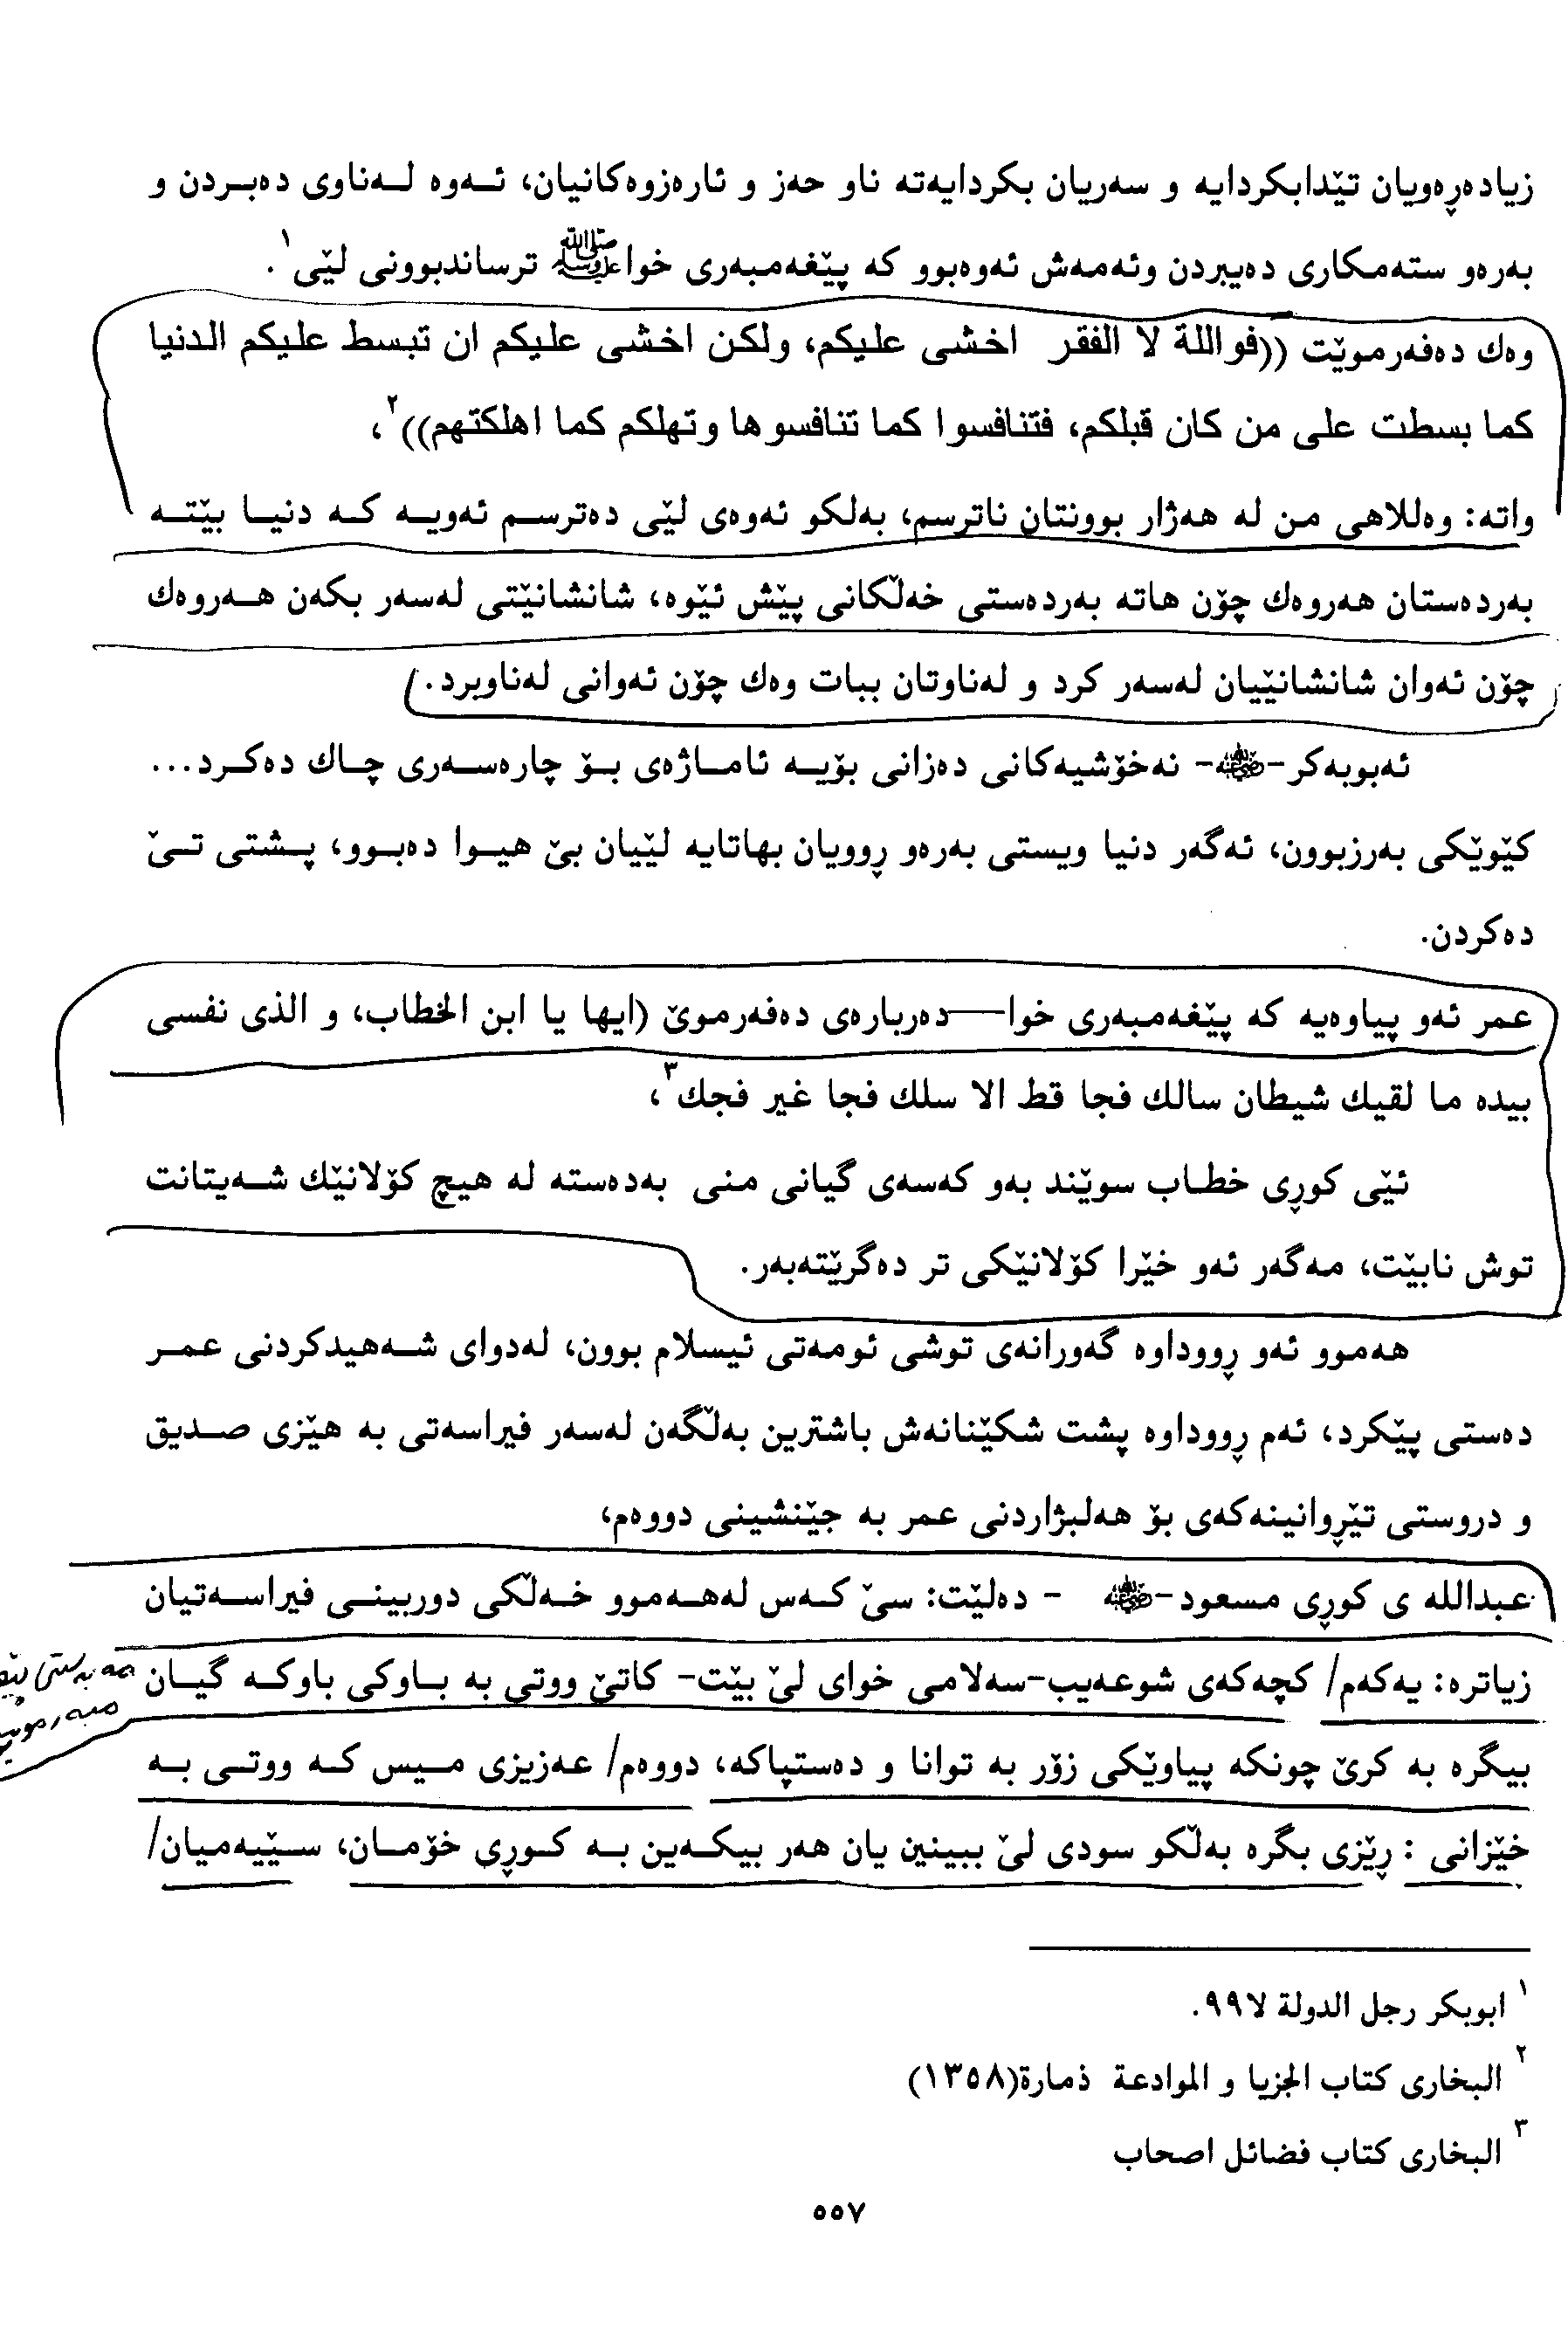 زیادەڕەویان تێدابکردایە و سەریان بکردایەتە ناو حەز و ئارەزوەکانیان، ئەوە لەناوی دەبردن و
بەرەو ستەمکاری دەیبردن وئەمەش ئەوەبوو کە پێغەمبەری خواﷺ ترساندبوونی لێی١.
وەك دەفەرموێت ((فواللة لا الفقر اخشی علیکم، ولکن اخشی علیکم ان تبسط علیکم الدنیا
کما بسطت علی من کان قبلکم، فتنافسوا کما تنافسوها وتهلکم کما اهلکتهم))٢،
واتە: وەللاهی من لە هەژار بوونتان ناترسم، بەلکو ئەوەی لێی دەترسم ئەویە کە دنیا بێتە
بەردەستان هەروەك چۆن هاتە بەردەستی خەڵکانی پێش ئێوە، شانشانێتی لەسەر بکەن هەروەك
چۆن ئەوان شانشانێیان لەسەر کرد و لەناوتان ببات وەك چۆن ئەوانی لەناوبرد.
ئەبوبەکر-- نەخۆشیەکانی دەزانی بۆیە ئاماژەی بۆ چارەسەری چاك دەکرد...
کێوێکی بەرزبوون، ئەگەر دنیا ویستی بەرەو ڕوویان بهاتایە لێیان بێ هیوا دەبوو، پشتی تێ
دەکردن.
عمر ئەو پیاوەیە کە پێغەمبەری خوا—دەربارەی دەفەرموێ (ایها یا ابن الخطاب، و الذی نفسی
بیده ما لقیك شیطان سالك فجا قط الا سلك فجا غیر فجك٣،
ئێی کوڕی خطاب سوێند بەو کەسەی گیانی منی بەدەستە لە هیچ کۆلانێك شەیتانت
توش نابێت، مەگەر ئەو خێرا کۆلانێکی تر دەگرێتەبەر.
هەموو ئەو ڕووداوە گەورانەی توشی ئومەتی ئیسلام بوون، لەدوای شەهیدکردنی عمر
دەستی پێکرد، ئەم ڕووداوە پشت شکێنانەش باشترین بەڵگەن لەسەر فیراسەتی بە هێزی صدیق
و دروستی تێڕوانینەکەی بۆ هەلبژاردنی عمر بە جێنشینی دووەم،
عبدالله ی کوڕی مسعود-- دەلێت: سێ کەس لەهەموو خەڵکی دوربینی فیراسەتیان
زیاترە: یەکەم/ کچەکەی شوعەیب-سەلامی خوای لێ بێت- کاتێ ووتی بە باوکی باوکە گیان
بیگرە بە کرێ چونکە پیاوێکی زۆر بە توانا و دەستپاکە، دووەم/ عەزیزی میس کە ووتی بە
خێزانی : ڕێزی بگرە بەڵکو سودی لێ ببینین یان هەر بیکەین بە کوڕی خۆمان، سێیەمیان/
١ ابوبکر رجل الدولة لا٩٩.
٢ البخاری کتاب الجزیا و الموادعة ژمارة(١٣٥٨)
٣ البخاری کتاب فضائل اصحاب
٥٥٧